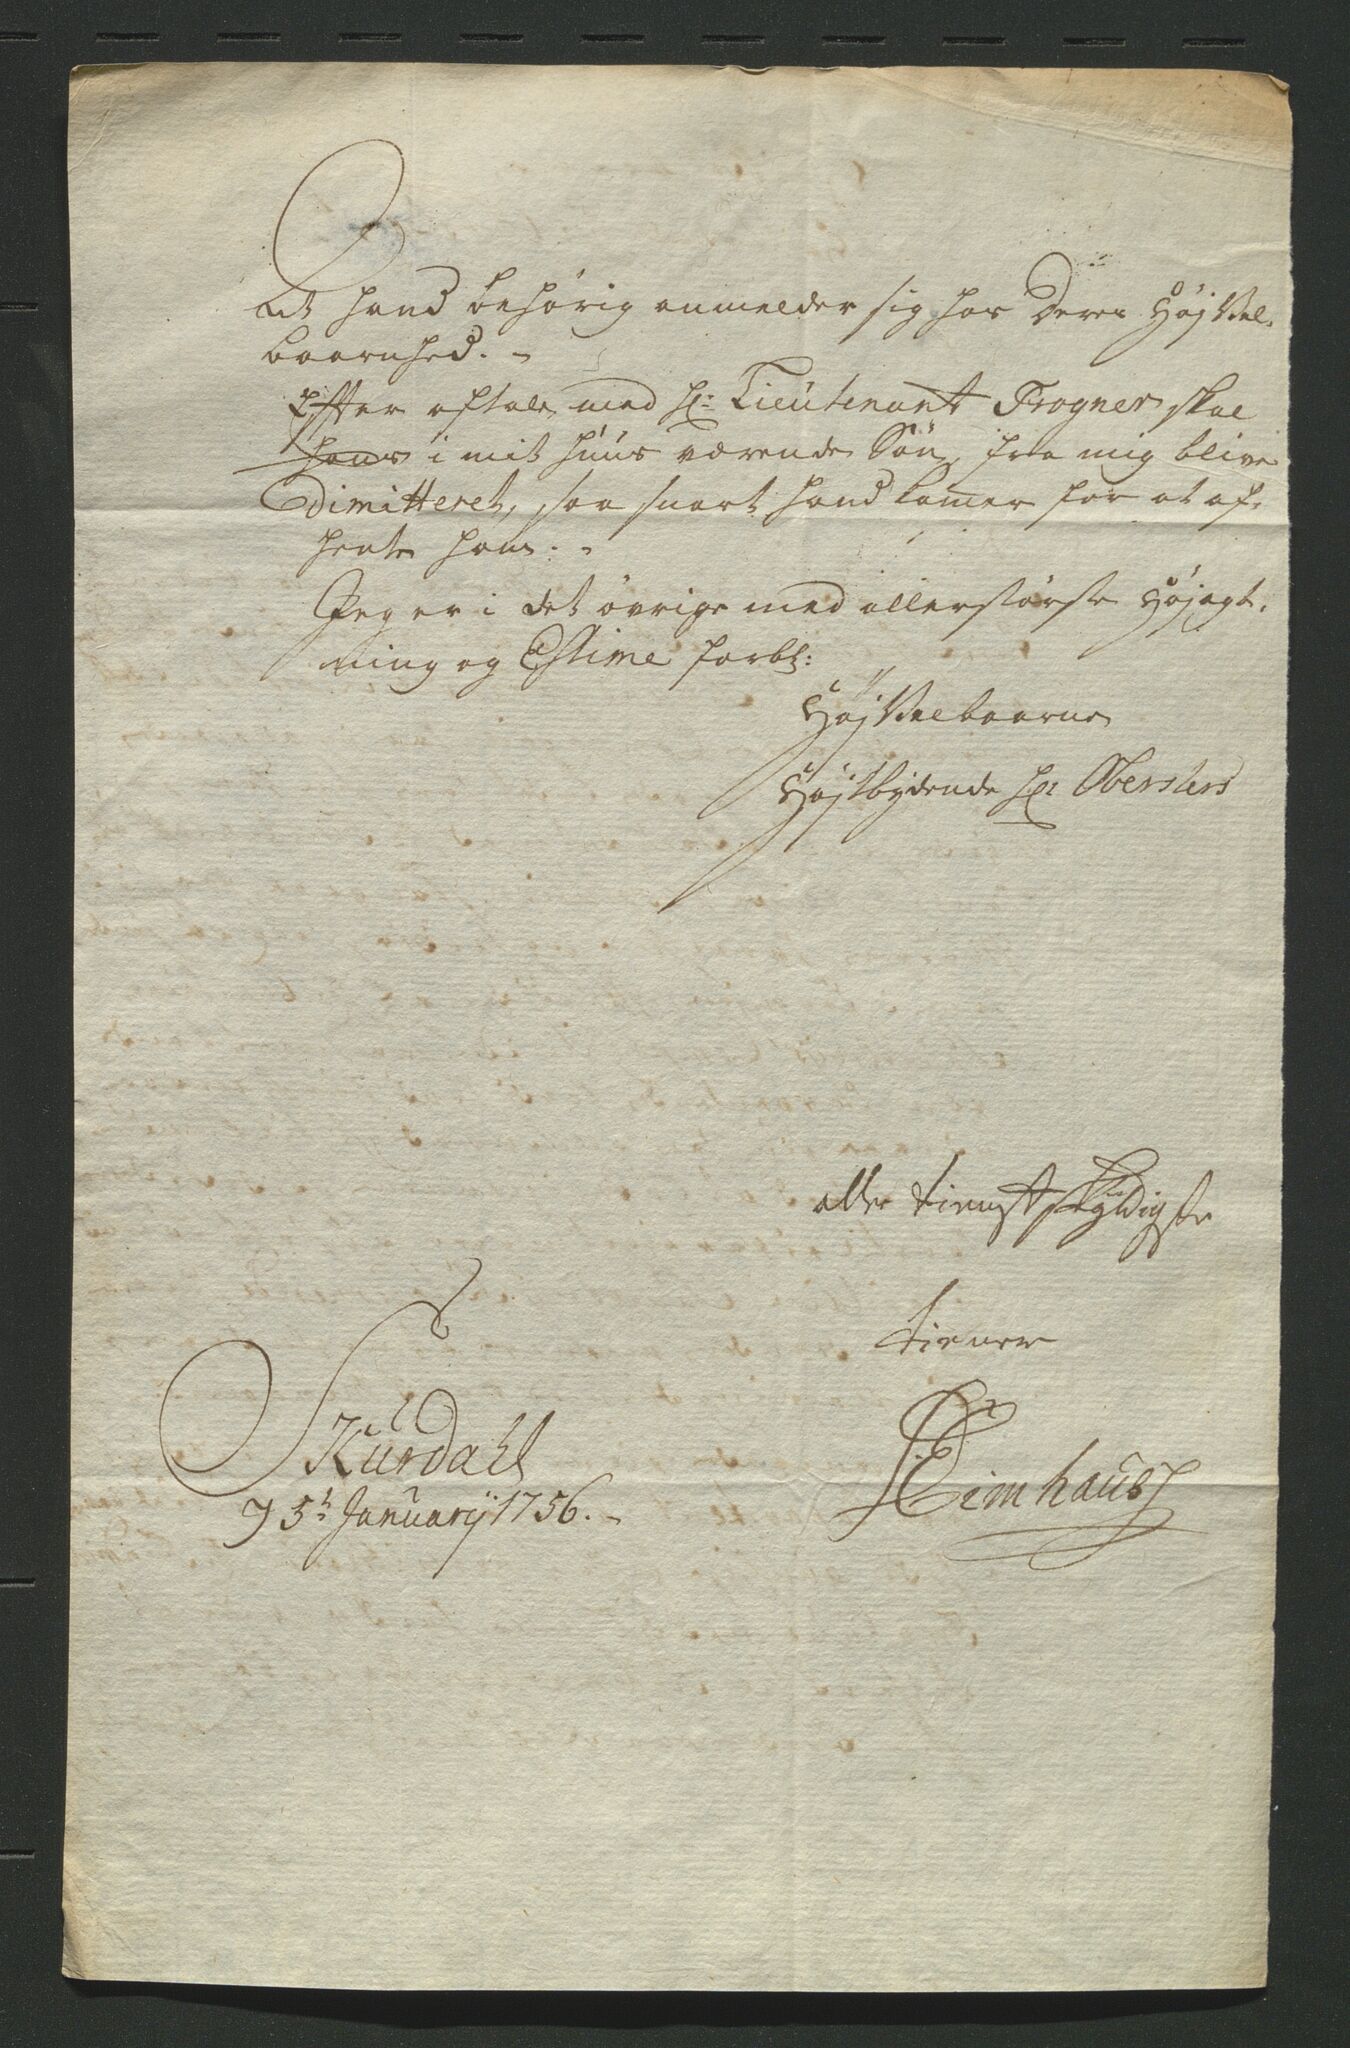 At hand behörig anmelder sig hos Deres HöjVel-
baarenhed. -
Efter aftale med Hr: Lieutenant Frogner skal
hans i mit Huus værende Sön, fra mig blive
dimitteret, saa snart hand komer for at af-
hente ham. -
Jeg er i det övrige med allerstörste Höjagt-
ning og Estime forbl:
HöjVelbaarne
Höjtbydende Hr: Obersters
aller tienstskyldigste
tiener
Skurdahl
5t Januarij 1756. -